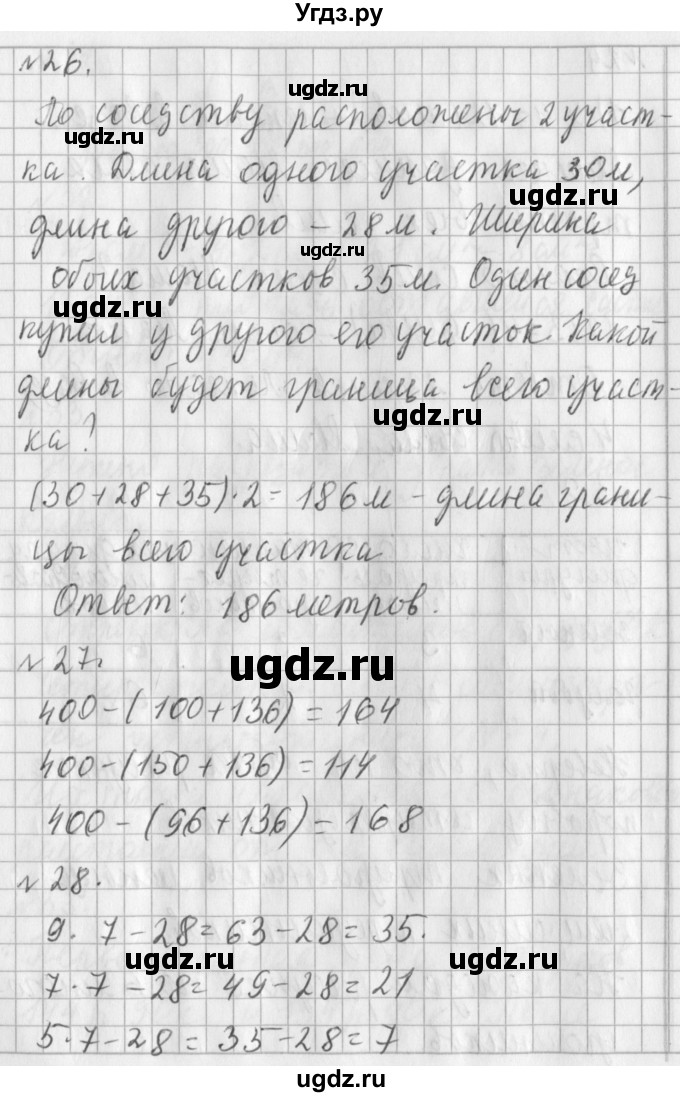 Угдз.ру
№26.
ugdz.ru
По соседству расположены 2 участ-
ка. Длина одного участка 30м,
ugdz.ru
длина другого – 28м. Ширина
ugdz.ru
обоих участков 35м. Один сосед
ugdz.ru
купил у другого его участок. Какой
длины будет граница всего участ-
ugdz.ru
ка?
(30+28+35)·2=186м – длина грани-
цы всего участка
Ответ: 186 метров.
ugdz.ru
№27.
400-(100+136)=164
400-(150+136)=114
400-(96+136)=168
№28.
9·7-28=63-28=35.
ugdz.ru ugdz.ru
7·7-28=49-28=21
5·7-28=35-28=7
ugdz.ru